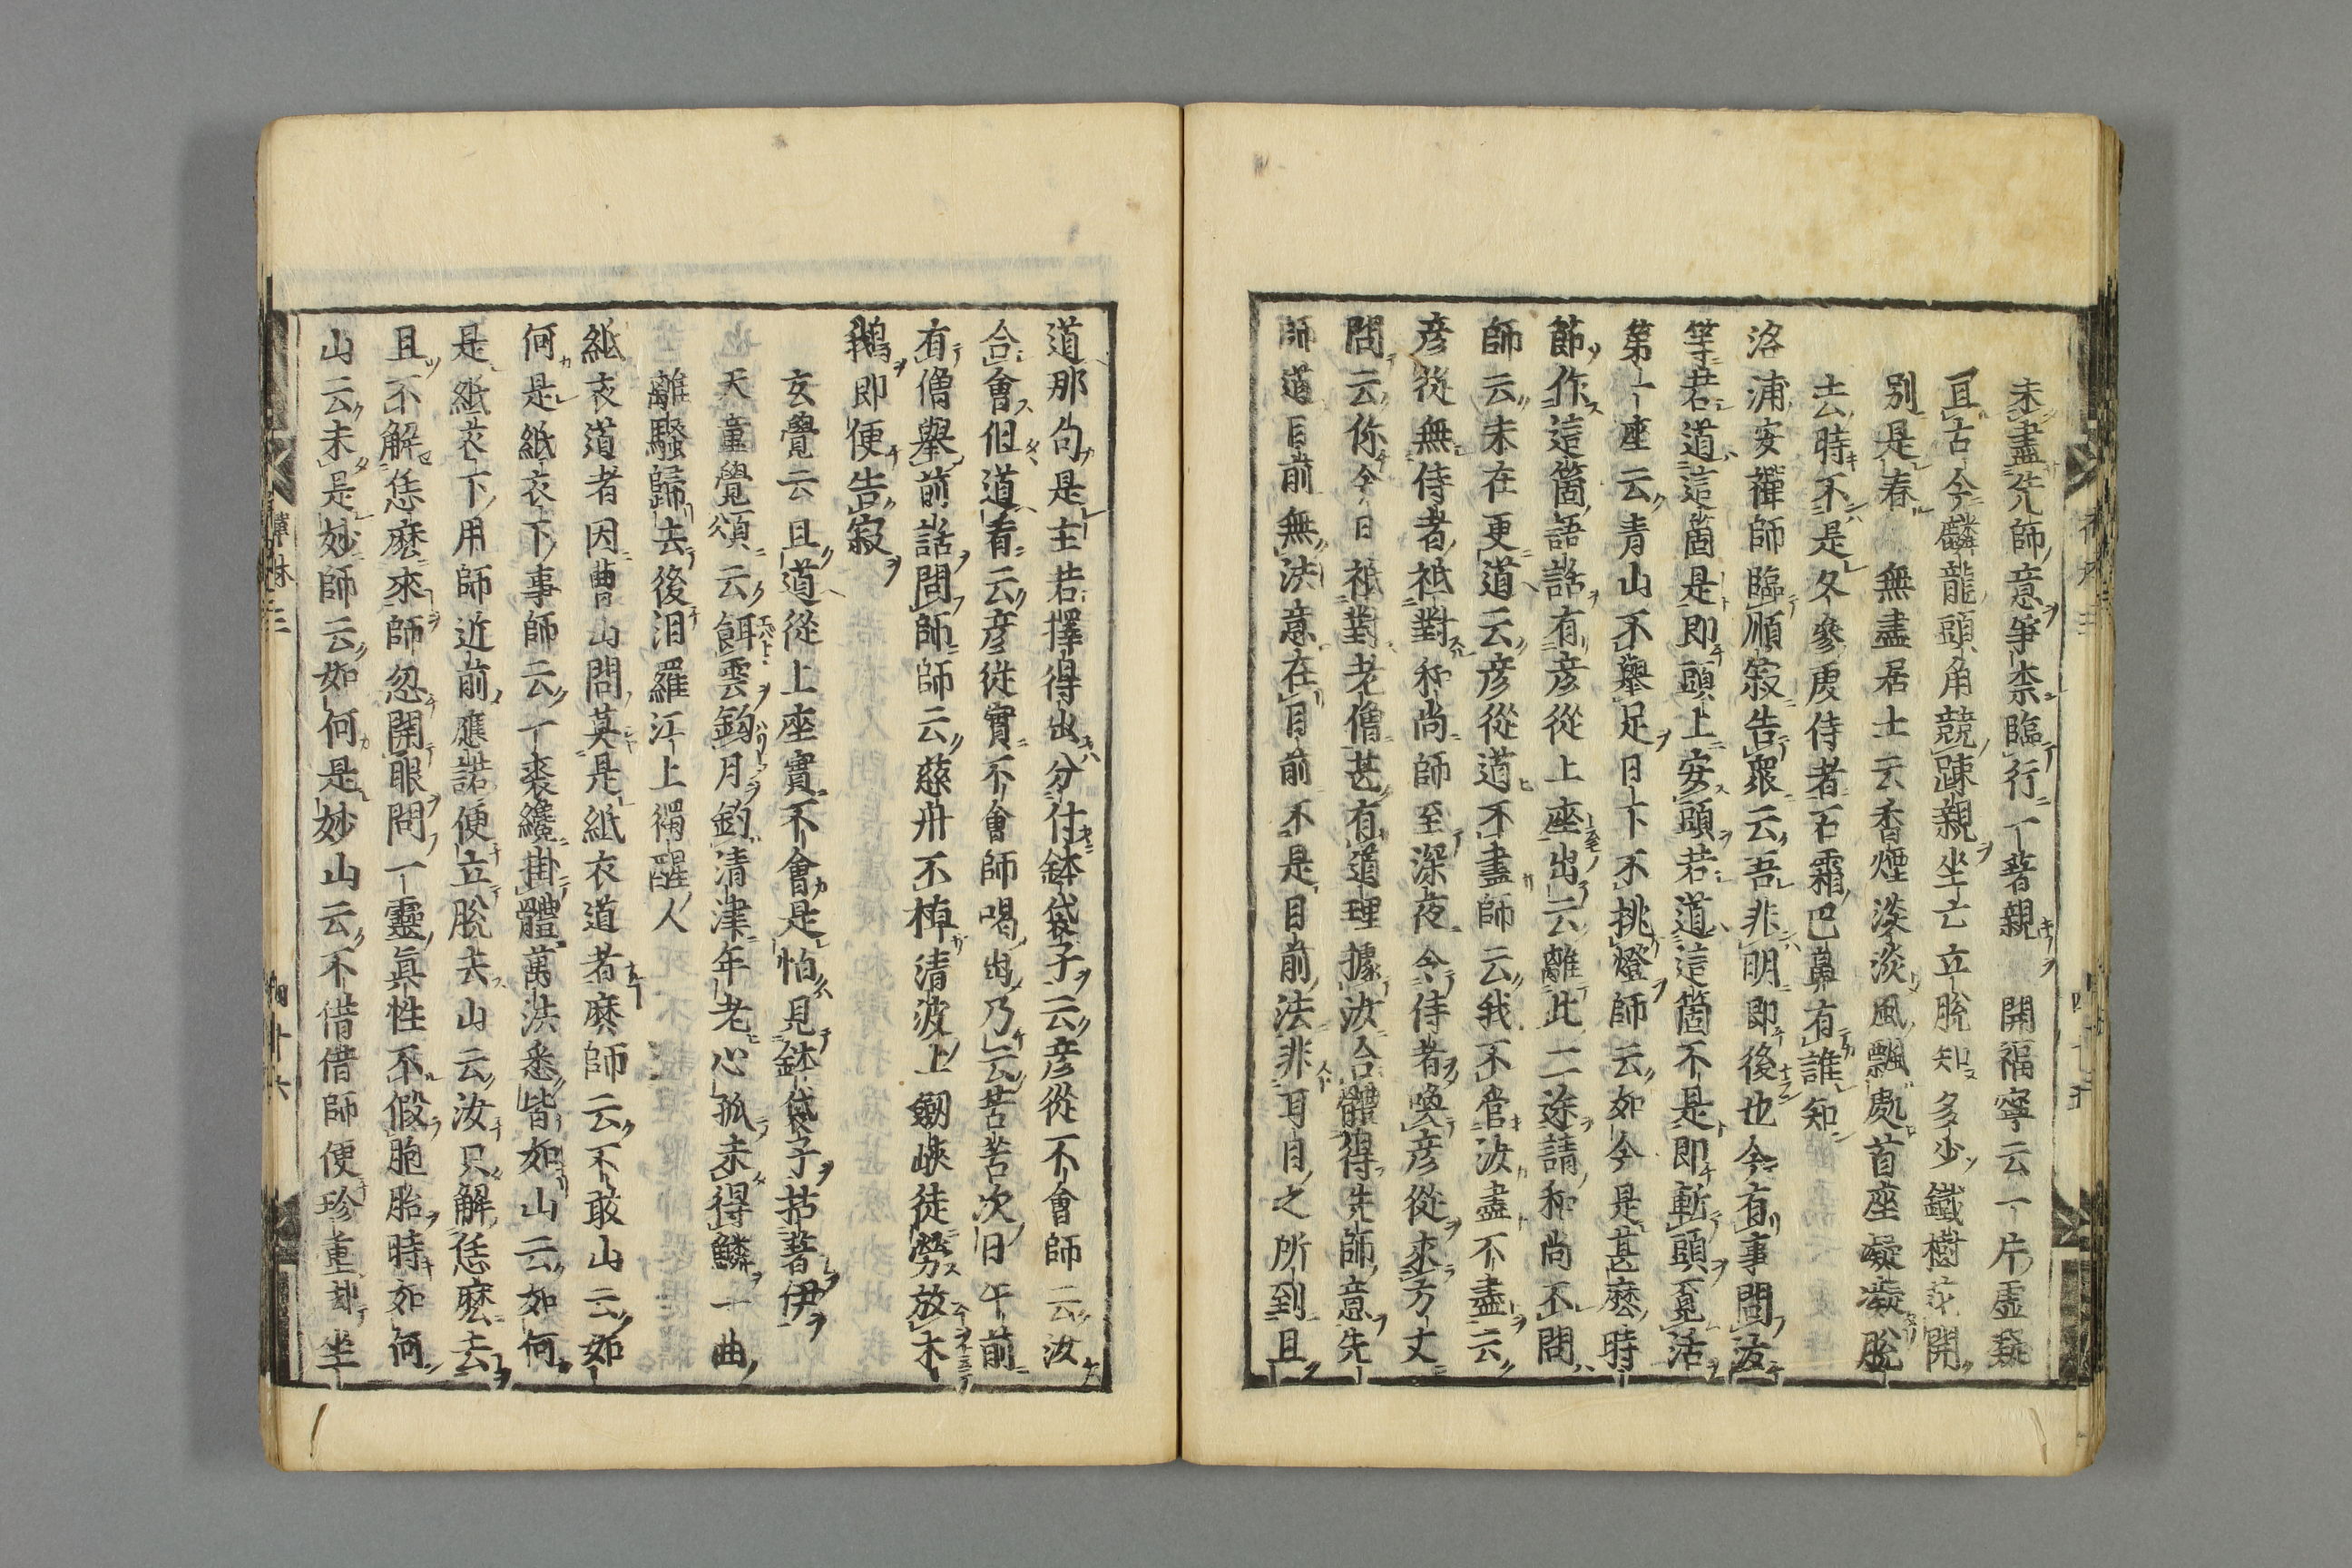 未盡先師意爭柰臨行一著親　開福寧云一片虛凝
亘古今麟龍頭角競踈親坐亡立脫知多少鐵樹花開
別是春　無盡居士云香煙淡淡風飄處首座凝凝脫
去時不是久參虔侍者石霜巴鼻有誰知
洛浦安禪師臨順寂告衆云吾非明即後也今有事問汝
等若道這箇是即頭上安頭若道這箇不是即斬頭覓活
第一座云青山不舉足日下不挑燈師云如今是甚麽時
節作這箇語話有彦從上座出云離此二途請和尚不問
師云未在更道云彦從道不盡師云我不管汝盡不盡云
彦從無侍者祗對和尚師至深夜令侍者喚彦從來方丈
問云你今日祗對老僧甚有道理據汝合體得先師意先
師道目前無法意在目前不是目前法非耳目之所到且
道那句是主若擇得出分付鉢袋子云彦從不會師云汝
合會但道看云彦從實不會師喝出乃云苦苦次日午前
有僧舉前話問師師云慈舟不棹清波上劒峽徒勞放木
鵝即便告寂
玄覺云且道從上座實不會是怕見鉢袋子拈著伊
天童覺頌云餌雲鈎月釣清津年老心孤未得鱗一曲
離騷歸去後汨羅江上獨醒人
紙衣道者因曹山問莫是紙衣道者麽師云不敢山云如
何是紙衣下事師云一裘纔掛體萬法悉皆如山云如何
是紙衣下用師近前應諾便立脫去山云汝只解恁麽去
且不解恁麽來師忽開眼問一靈眞性不假胞胎時如何
山云未是妙師云如何是妙山云不借借師便珍重却坐